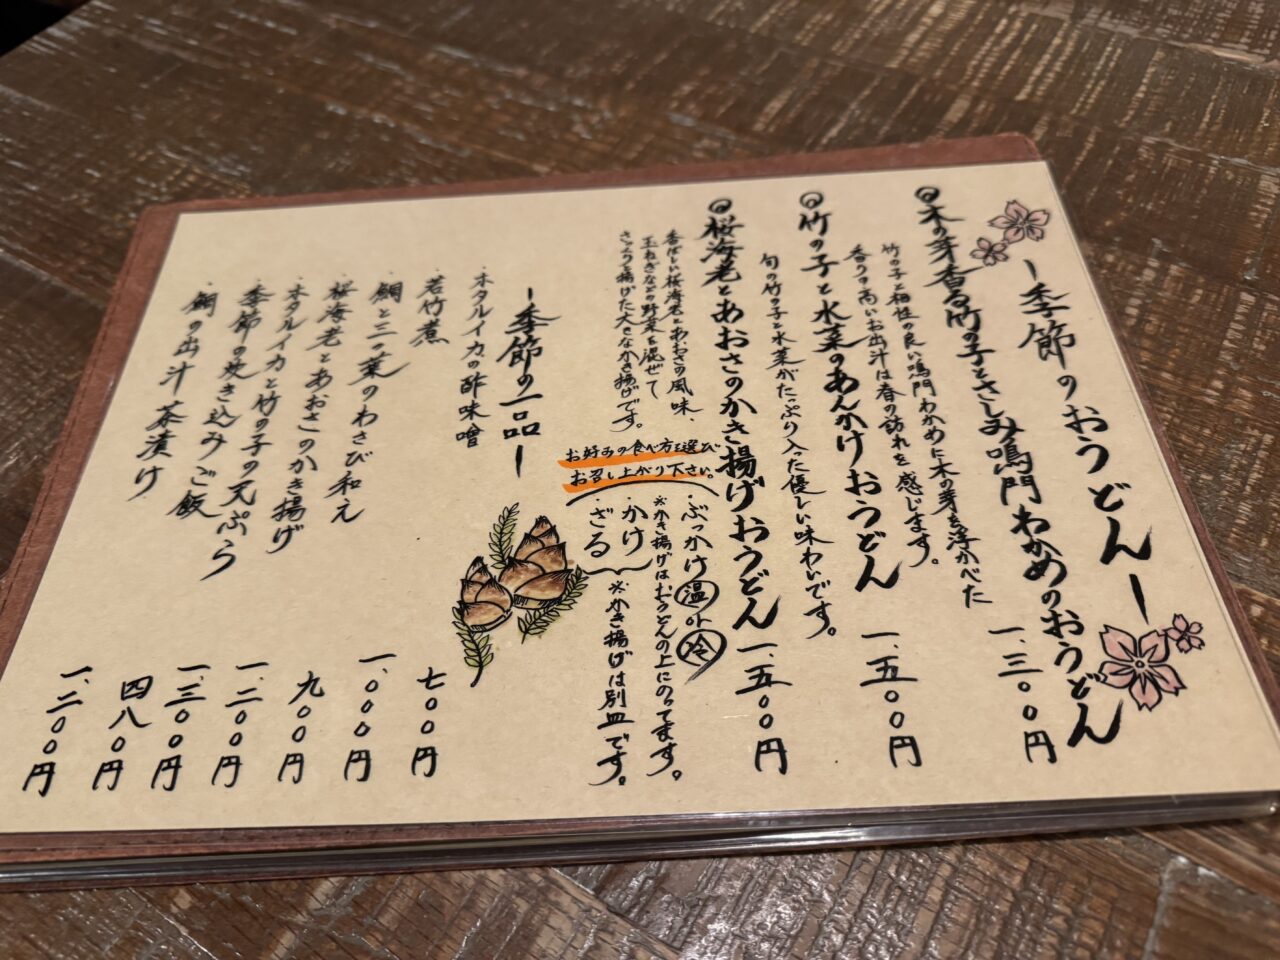 －季節のおうどん－
◎木の芽香る竹の子とさしみ鳴門わかめのおうどん
竹の子と相性の良い鳴門わかめに木の芽を浮かべた
香りの高いお出汁は春の訪れを感じます。
一、三〇〇円
◎竹の子と水菜のあんかけおうどん
旬の竹の子と水菜がたっぷり入った優しい味わいです。
一、五〇〇円
◎桜海老とあおさのかき揚げおうどん
一、五〇〇円
香ばしい桜海老とあおさの風味、
玉ねぎなどの野菜を混ぜて
さっくり揚げた大きなかき揚げです。
お好みの食べ方を選び
お召し上がり下さい。
・ぶっかけ 温 or 冷
※かき揚げはおうどんの上にのってます。
・かけ
・ざる
※かき揚げは別皿です。
－季節の一品－
・ホタルイカの酢味噌 七〇〇円
・若竹煮 一、〇〇〇円
・鯛と三つ葉のわさび和え 九〇〇円
・桜海老とあおさのかき揚げ 一、二〇〇円
・ホタルイカと竹の子の天ぷら 一、三〇〇円
・季節の炊き込みご飯 四八〇円
・鯛の出汁茶漬け 一、二〇〇円